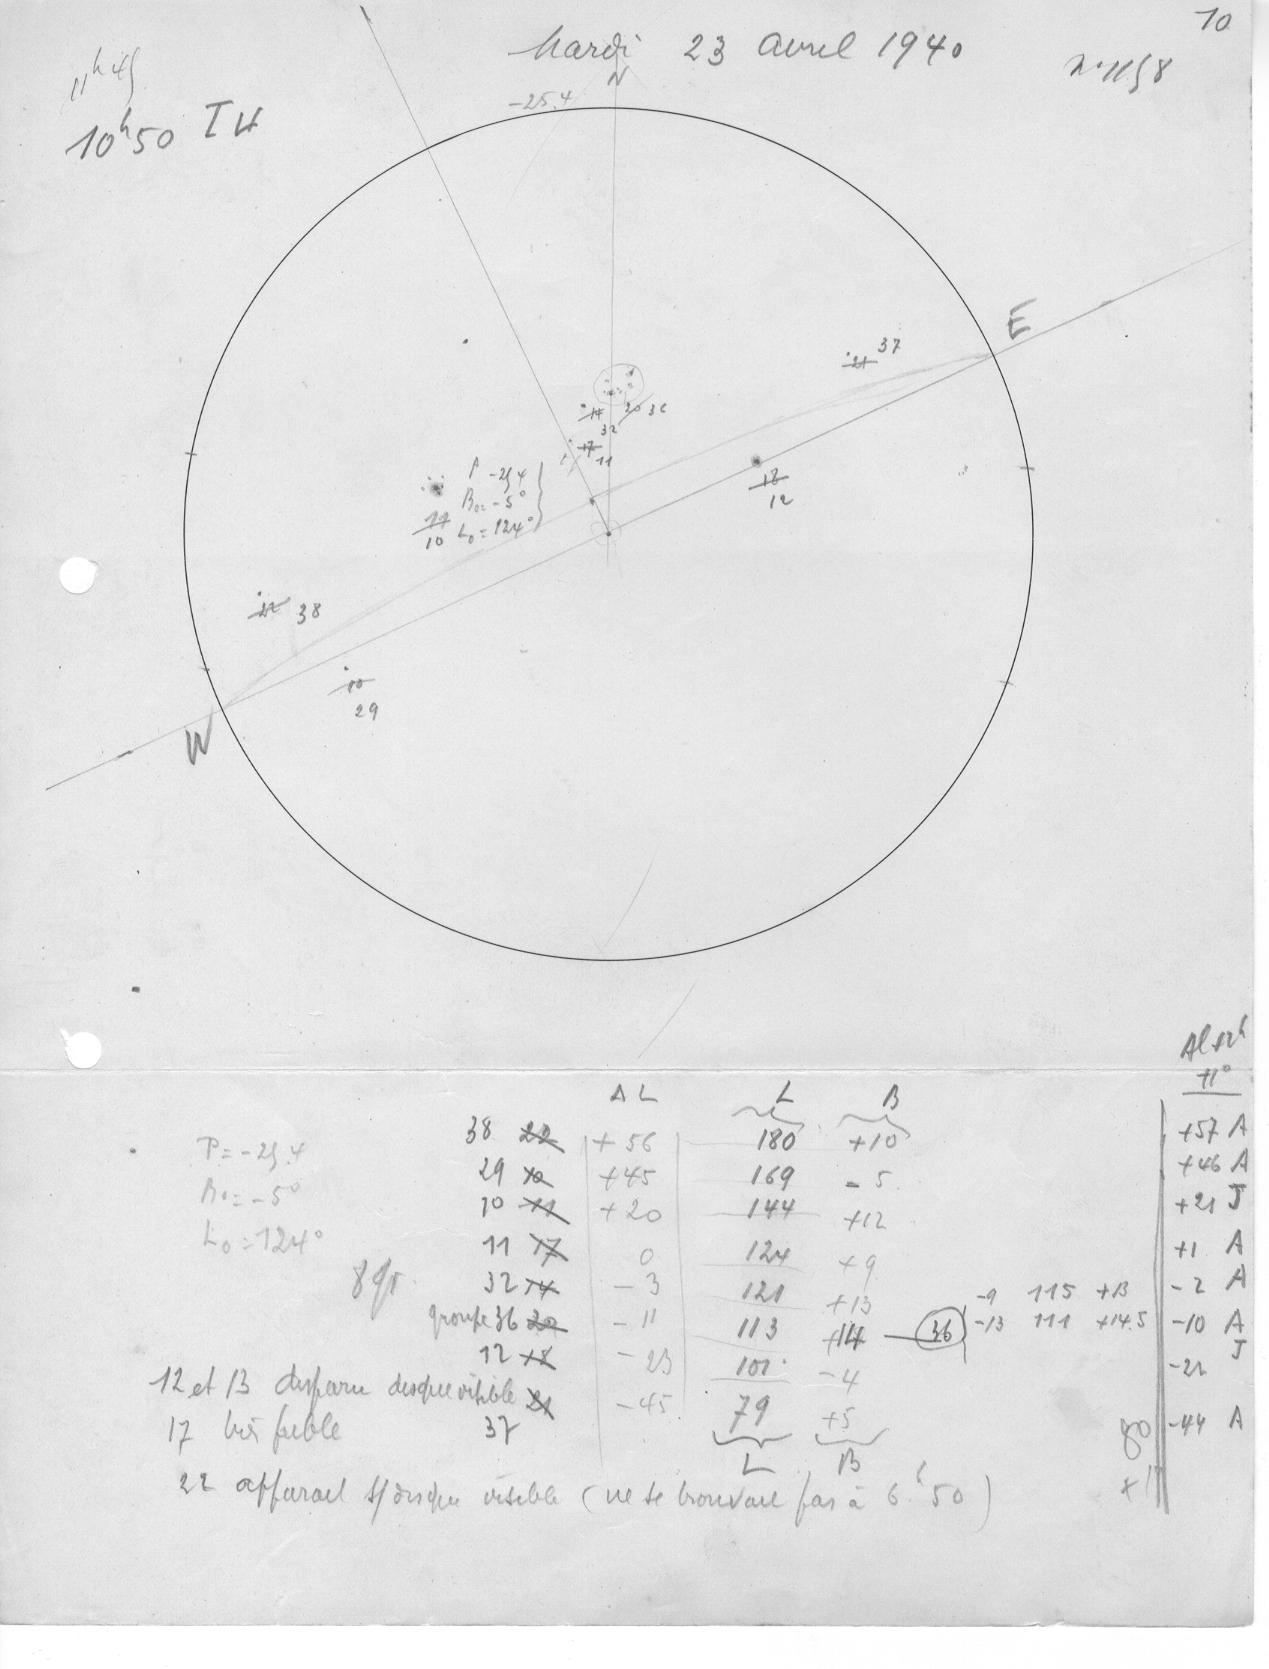 10
Mardi 23 avril 1940
N
11h45
10h50 TU
-25.4
E
21 37
14 20 36
32
17 11
P -25,4
B0= -5°
L0=124°
11
10
18
12
22 38
10
29
W
ΔL L B
Al 12h
+1°
P=-25.4
B0=-5°
L0=124°
8 gr.
38 22 +56 180 +10 +57 A
29 10 +45 169 -5 +46 A
10 11 +20 144 +12 +21 J
11 17 0 124 +9 +1 A
32 14 -3 121 +13 -2 A
groupe 36 20 -11 113 +14 36 -10 A
-9 115 +13
-13 111 +14.5
12 18 -23 101 -4 -22 J
37 21 -45 79 +5 -44 A
L B
12 et 13 disparu disque visible
17 très faible
22 apparait s/disque visible (ne se trouvait pas à 6h50)